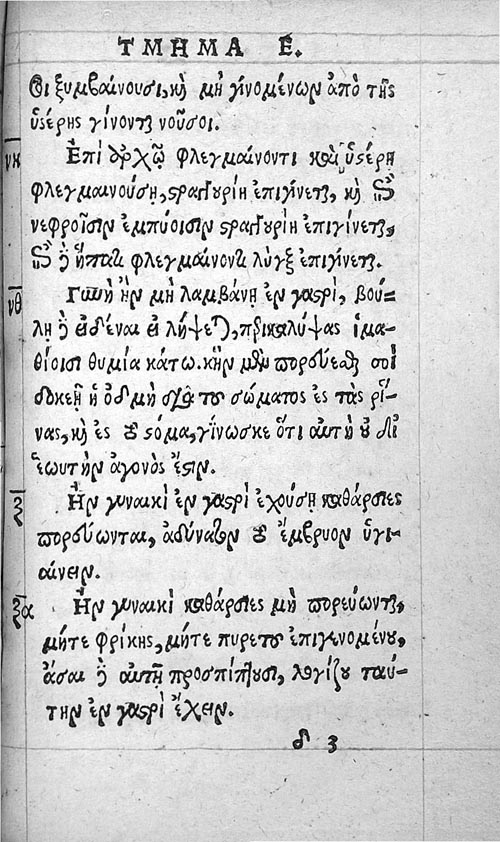 ΤΜΗΜΑ Ε.
οι ξυμβαίνουσι, καὶ μὴ γινομένων ἀπὸ τῆς
ὑστέρης γίνονται νοῦσοι.
νη Ἐπὶ ἀρχῷ φλεγμαίνοντι καὶ ὑστέρῃ
φλεγμαινούσῃ, στραγγουρίη ἐπιγίνεται, καὶ ἐπὶ
νεφροῖσιν ἐμπύοισιν στραγγουρίη ἐπιγίνεται,
ἐπὶ δὲ ἥπατι φλεγμαίνοντι λὺγξ ἐπιγίνεται.
νθ Γυνὴ ἢν μὴ λαμβάνῃ ἐν γαστρὶ, βού-
λῃ δὲ εἰδέναι εἰ λήψεται, περικαλύψας ἱμα-
θίοισι θυμία κάτω. κἢν μὲν πορεύεσθαι σοὶ
δοκέῃ ἡ ὀδμὴ διὰ τοῦ σώματος ἐς τὰς ῥῖ-
νας, καὶ ἐς τὸ στόμα, γίνωσκε ὅτι αὐτὴ οὐ δι'
ἑωυτὴν ἄγονός ἐστιν.
ξ Ἢν γυναικὶ ἐν γαστρὶ ἐχούσῃ καθάρσιες
πορεύωνται, ἀδύνατον τὸ ἔμβρυον ὑγι-
αίνειν.
ξα Ἢν γυναικὶ καθάρσιες μὴ πορεύωνται,
μήτε φρίκης, μήτε πυρετοῦ ἐπιγενομένου,
ἄσαι δὲ αὐτῇ προσπίπτουσι, λογίζου ταύ-
την ἐν γαστρὶ ἔχειν.
δ 3